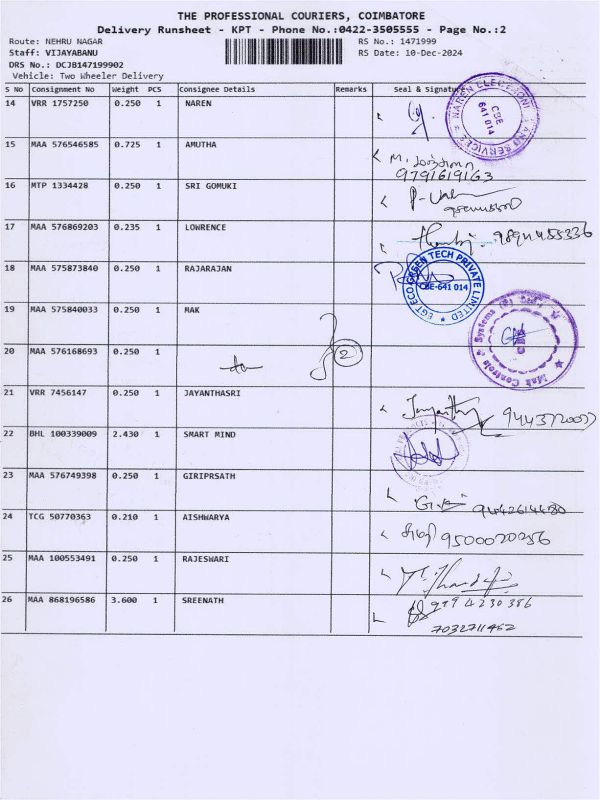 THE PROFESSIONAL COURIERS, COIMBATORE
Delivery Runsheet - KPT - Phone No.:0422-3505555 - Page No.:2
Route: NEHRU NAGAR RS No.: 1471999
Staff: VIJAYABANU RS Date: 10-Dec-2024
DRS No.: DCJB147199902
Vehicle: Two Wheeler Delivery
S No Consignment No Weight PCS Consignee Details Remarks Seal & Signature
14 VRR 1757250 0.250 1 NAREN
CBE
641 014
15 MAA 576546585 0.725 1 AMUTHA
9791619163
16 MTP 1334428 0.250 1 SRI GOMUKI
17 MAA 576869203 0.235 1 LOWRENCE
9894455336
18 MAA 575873840 0.250 1 RAJARAJAN
EGT ECO GREEN TECH PRIVATE LIMITED
CBE-641 014
19 MAA 575840033 0.250 1 MAK
Mak Controls & Systems (P) Ltd.
20 MAA 576168693 0.250 1
2
21 VRR 7456147 0.250 1 JAYANTHASRI
22 BHL 100339009 2.430 1 SMART MIND
23 MAA 576749398 0.250 1 GIRIPRSATH
24 TCG 50770363 0.210 1 AISHWARYA
9500020256
25 MAA 100553491 0.250 1 RAJESWARI
26 MAA 868196586 3.600 1 SREENATH
9894230386
7032711462